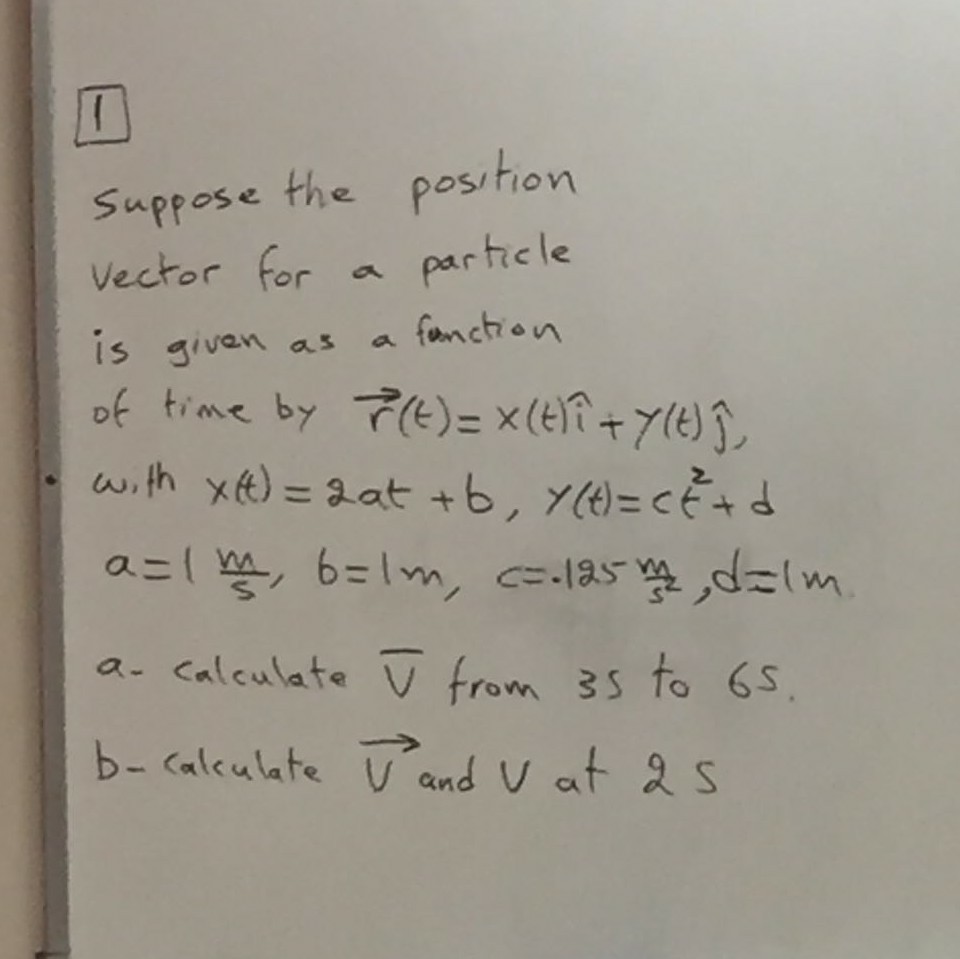 1
Suppose the position
vector for a particle
is given as a function
of time by r⃗(t)= x(t)î + y(t)ĵ,
with x(t) = 2at + b, y(t)= ct² + d
a=1 m/s, b=1m, c=.125 m/s², d=1m.
a- calculate V̅ from 3s to 6s.
b- calculate V⃗ and V at 2 s